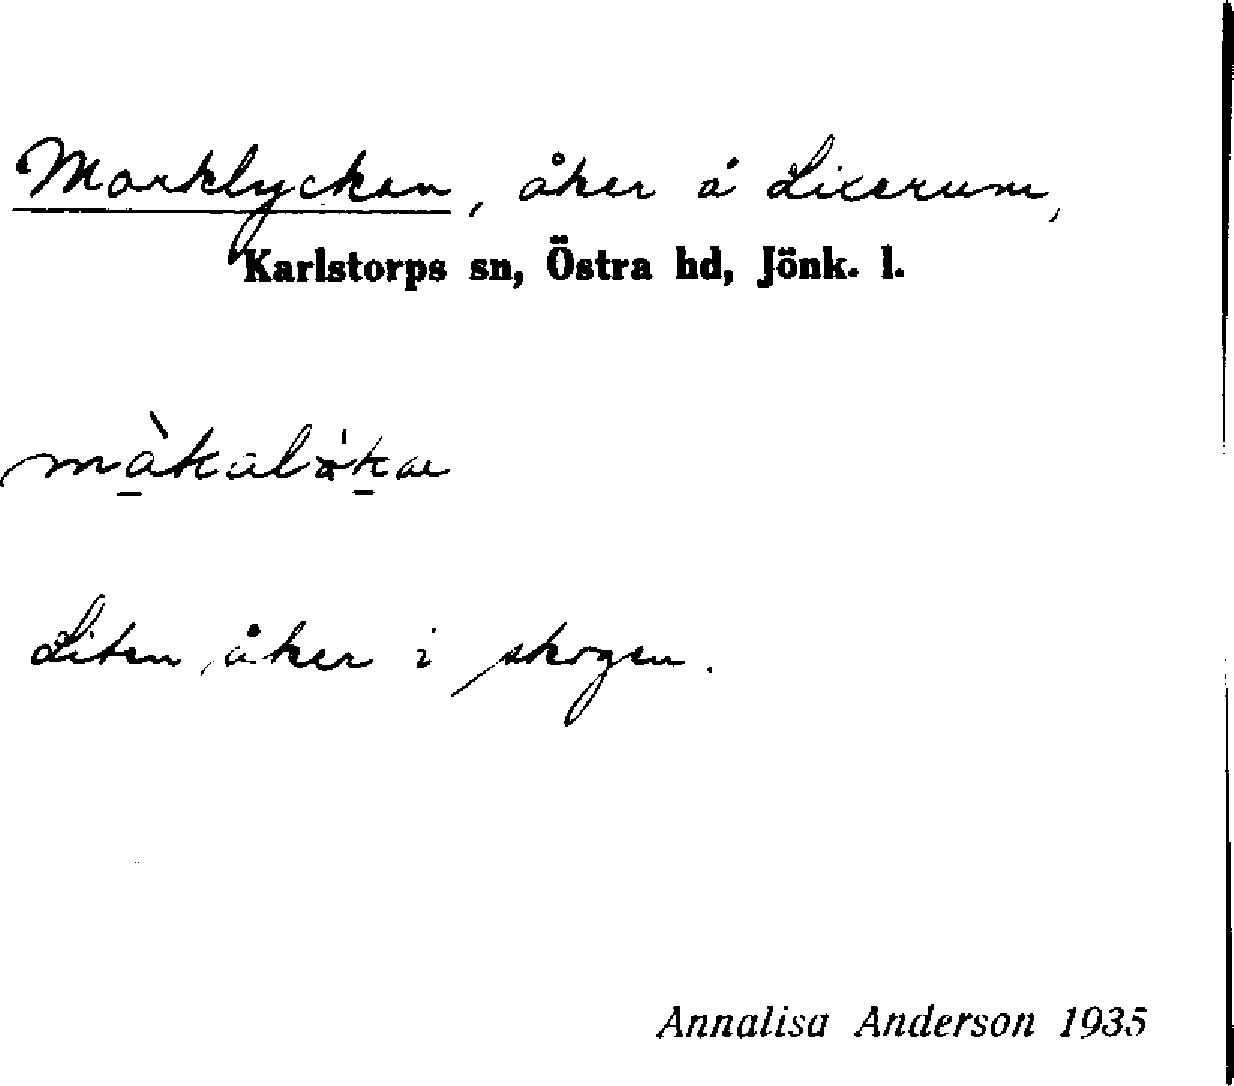 Marklyckan, åker å Lixerum,
Karlstorps sn, Östra hd, Jönk. l.
Liten åker i skogen.
Annalisa Anderson 1935